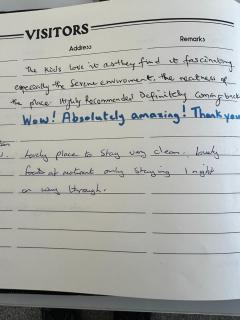 VISITORS
Address Remarks
The kids love it as they find it fascinating
especially the serene environment, the neatness of
the place. Highly Recommended Definitely Coming back
Wow! Absolutely amazing! Thank you
Lovely place to stay very clean. lovely
food at only staying 1 night
on way through.